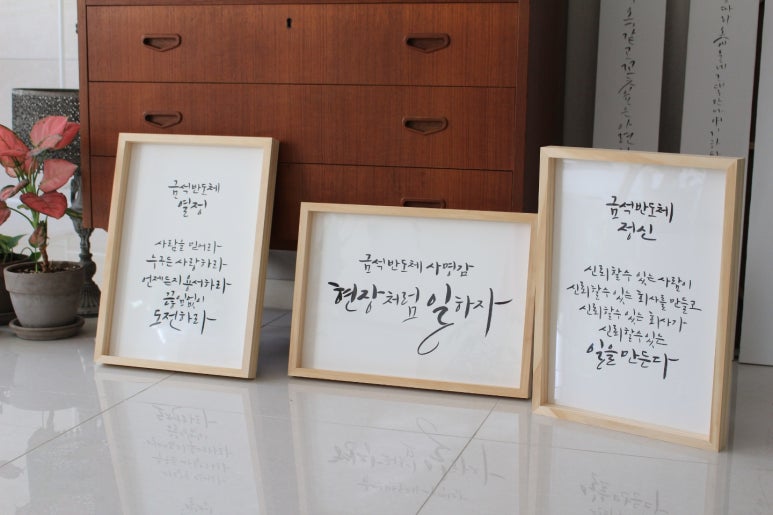 금석반도체
열정
사람을 믿어라
누구든 사랑하라
언제든지 용서하라
끊임없이
도전하라
금석반도체 사명감
현장처럼 일하자
금석반도체
정신
신뢰할수 있는 사람이
신뢰할수 있는 회사를 만들고
신뢰할수 있는 회사가
신뢰할수 있는
일을 만든다